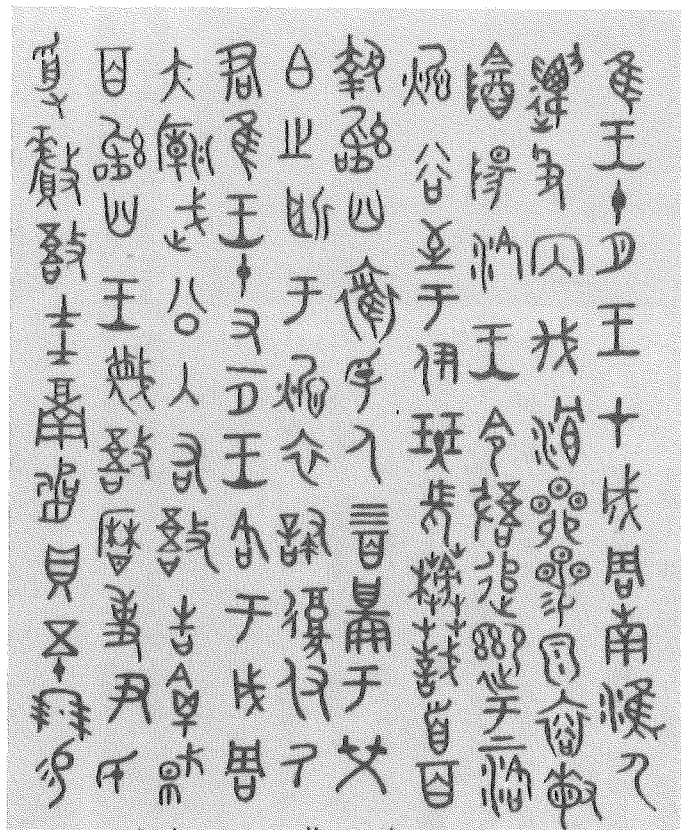 隹王十月王才成周南淮尸
遷殳內伐昴參泉裕敏
陰陽洛王令敔追于上洛
㤅谷至于伊班長榜首百
執訊卌奪孚人四百啚于榮
白之所于㤅衣復付氒
君隹王十又一月王各于成周
大廟武公入右敔告禽馘
百訊卌王蔑敔曆事尹氏
受釐敔圭瓚貝五十朋易